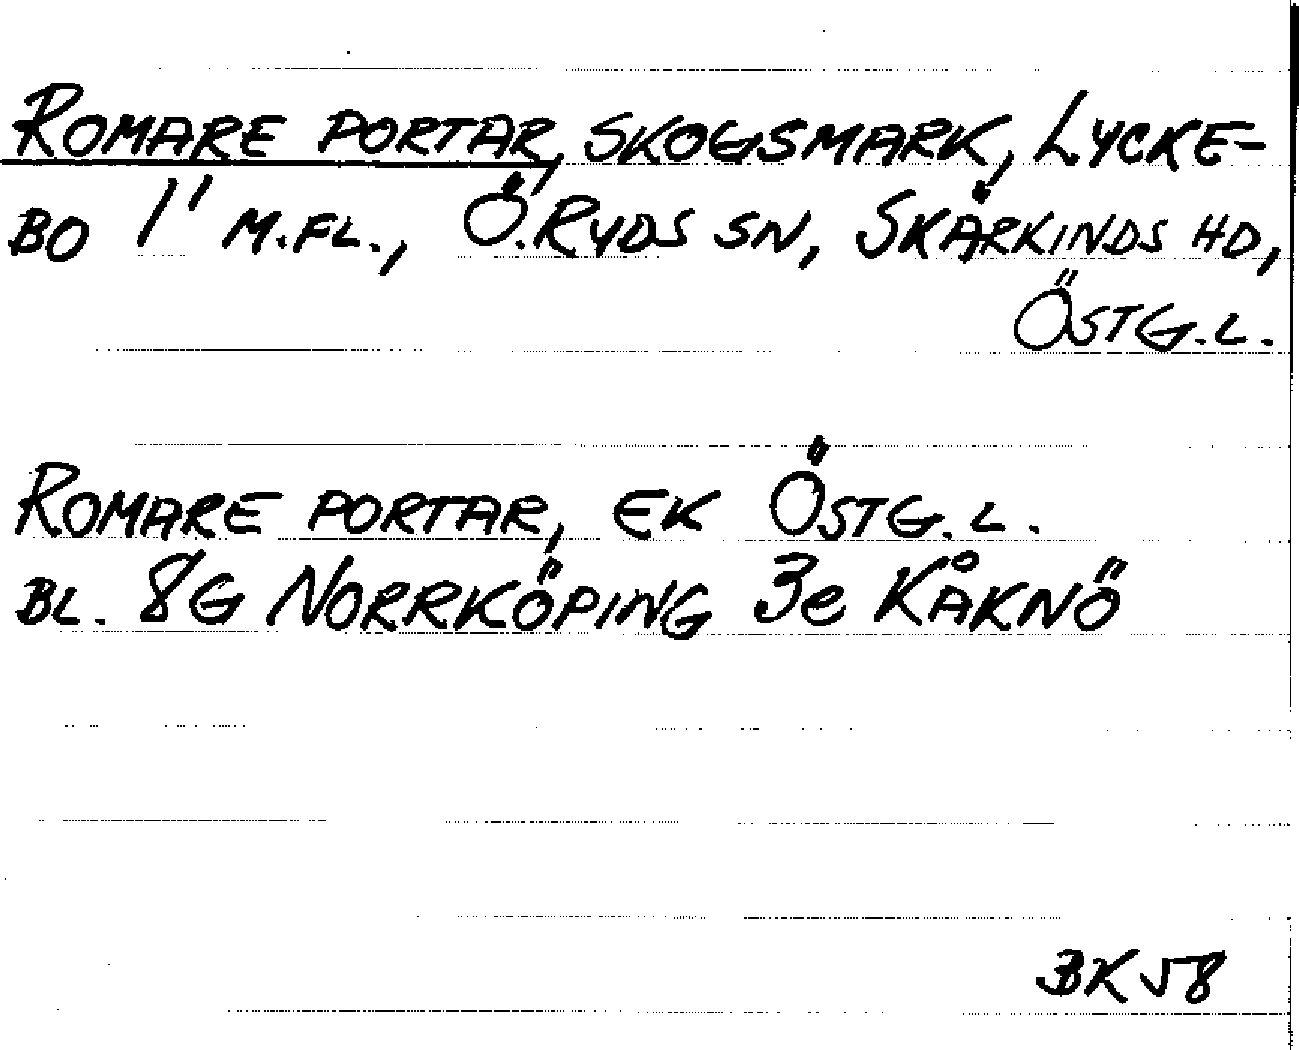 ROMARE PORTAR, SKOGSMARK, LYCKE-
BO 1' M.FL., Ö.RYDS SN, SKÄRKINDS HD,
ÖSTG.L.
ROMARE PORTAR, EK ÖSTG.L.
BL. 8G NORRKÖPING 3e KÅKNÖ
BK58